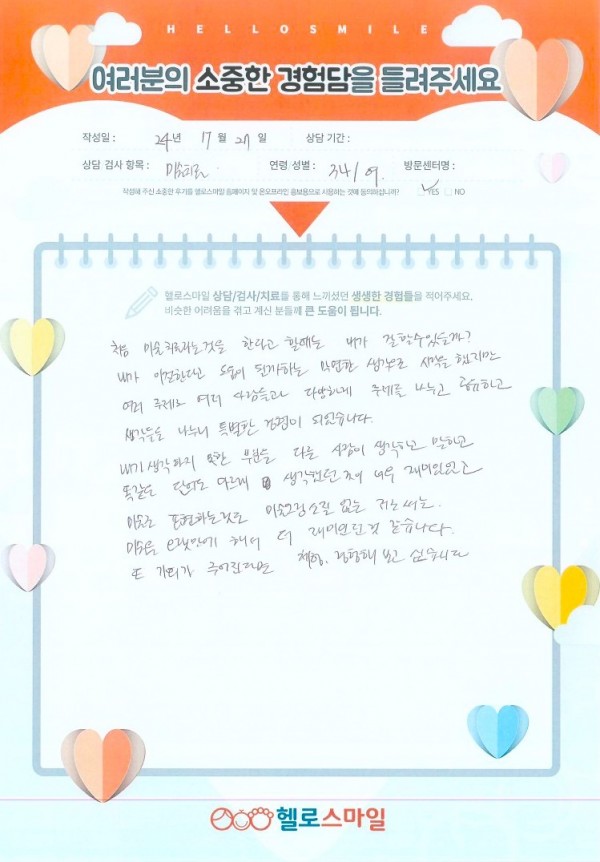 HELLOSMILE
여러분의 소중한 경험담을 들려주세요
작성일 : 24년 17월 27일 상담 기간 :
상담 검사 항목 : 미술치료 연령, 성별 : 34/여. 방문센터명 :
작성해 주신 소중한 후기를 헬로스마일 홈페이지 및 온오프라인 홍보용으로 사용하는 것에 동의하십니까? YES NO
헬로스마일 상담/검사/치료를 통해 느끼셨던 생생한 경험들을 적어주세요.
비슷한 어려움을 겪고 계신 분들께 큰 도움이 됩니다.
처음 미술치료라는것을 한다고 할때에는 내가 잘할수있을까?
내가 이걸한다고 도움이 될까하는 막연한 생각으로 시작을 했지만
여러 주제로 여러 사람들과 다양하게 주제를 나누고 공유하고
생각들을 나누니 특별한 경험이 되었습니다.
내가 생각하지 못한 부분들 다른 사람이 생각하고 말하고
똑같은 단어도 다르게 생각했던 것이 너무 재미있었고
미술로 표현하는것도 미술그림소질 없는 저로써는
미술을 오랫만에 해서 더 재미있던것 같습니다.
또 기회가 주어진다면 체험, 경험해 보고 싶습니다
헬로스마일